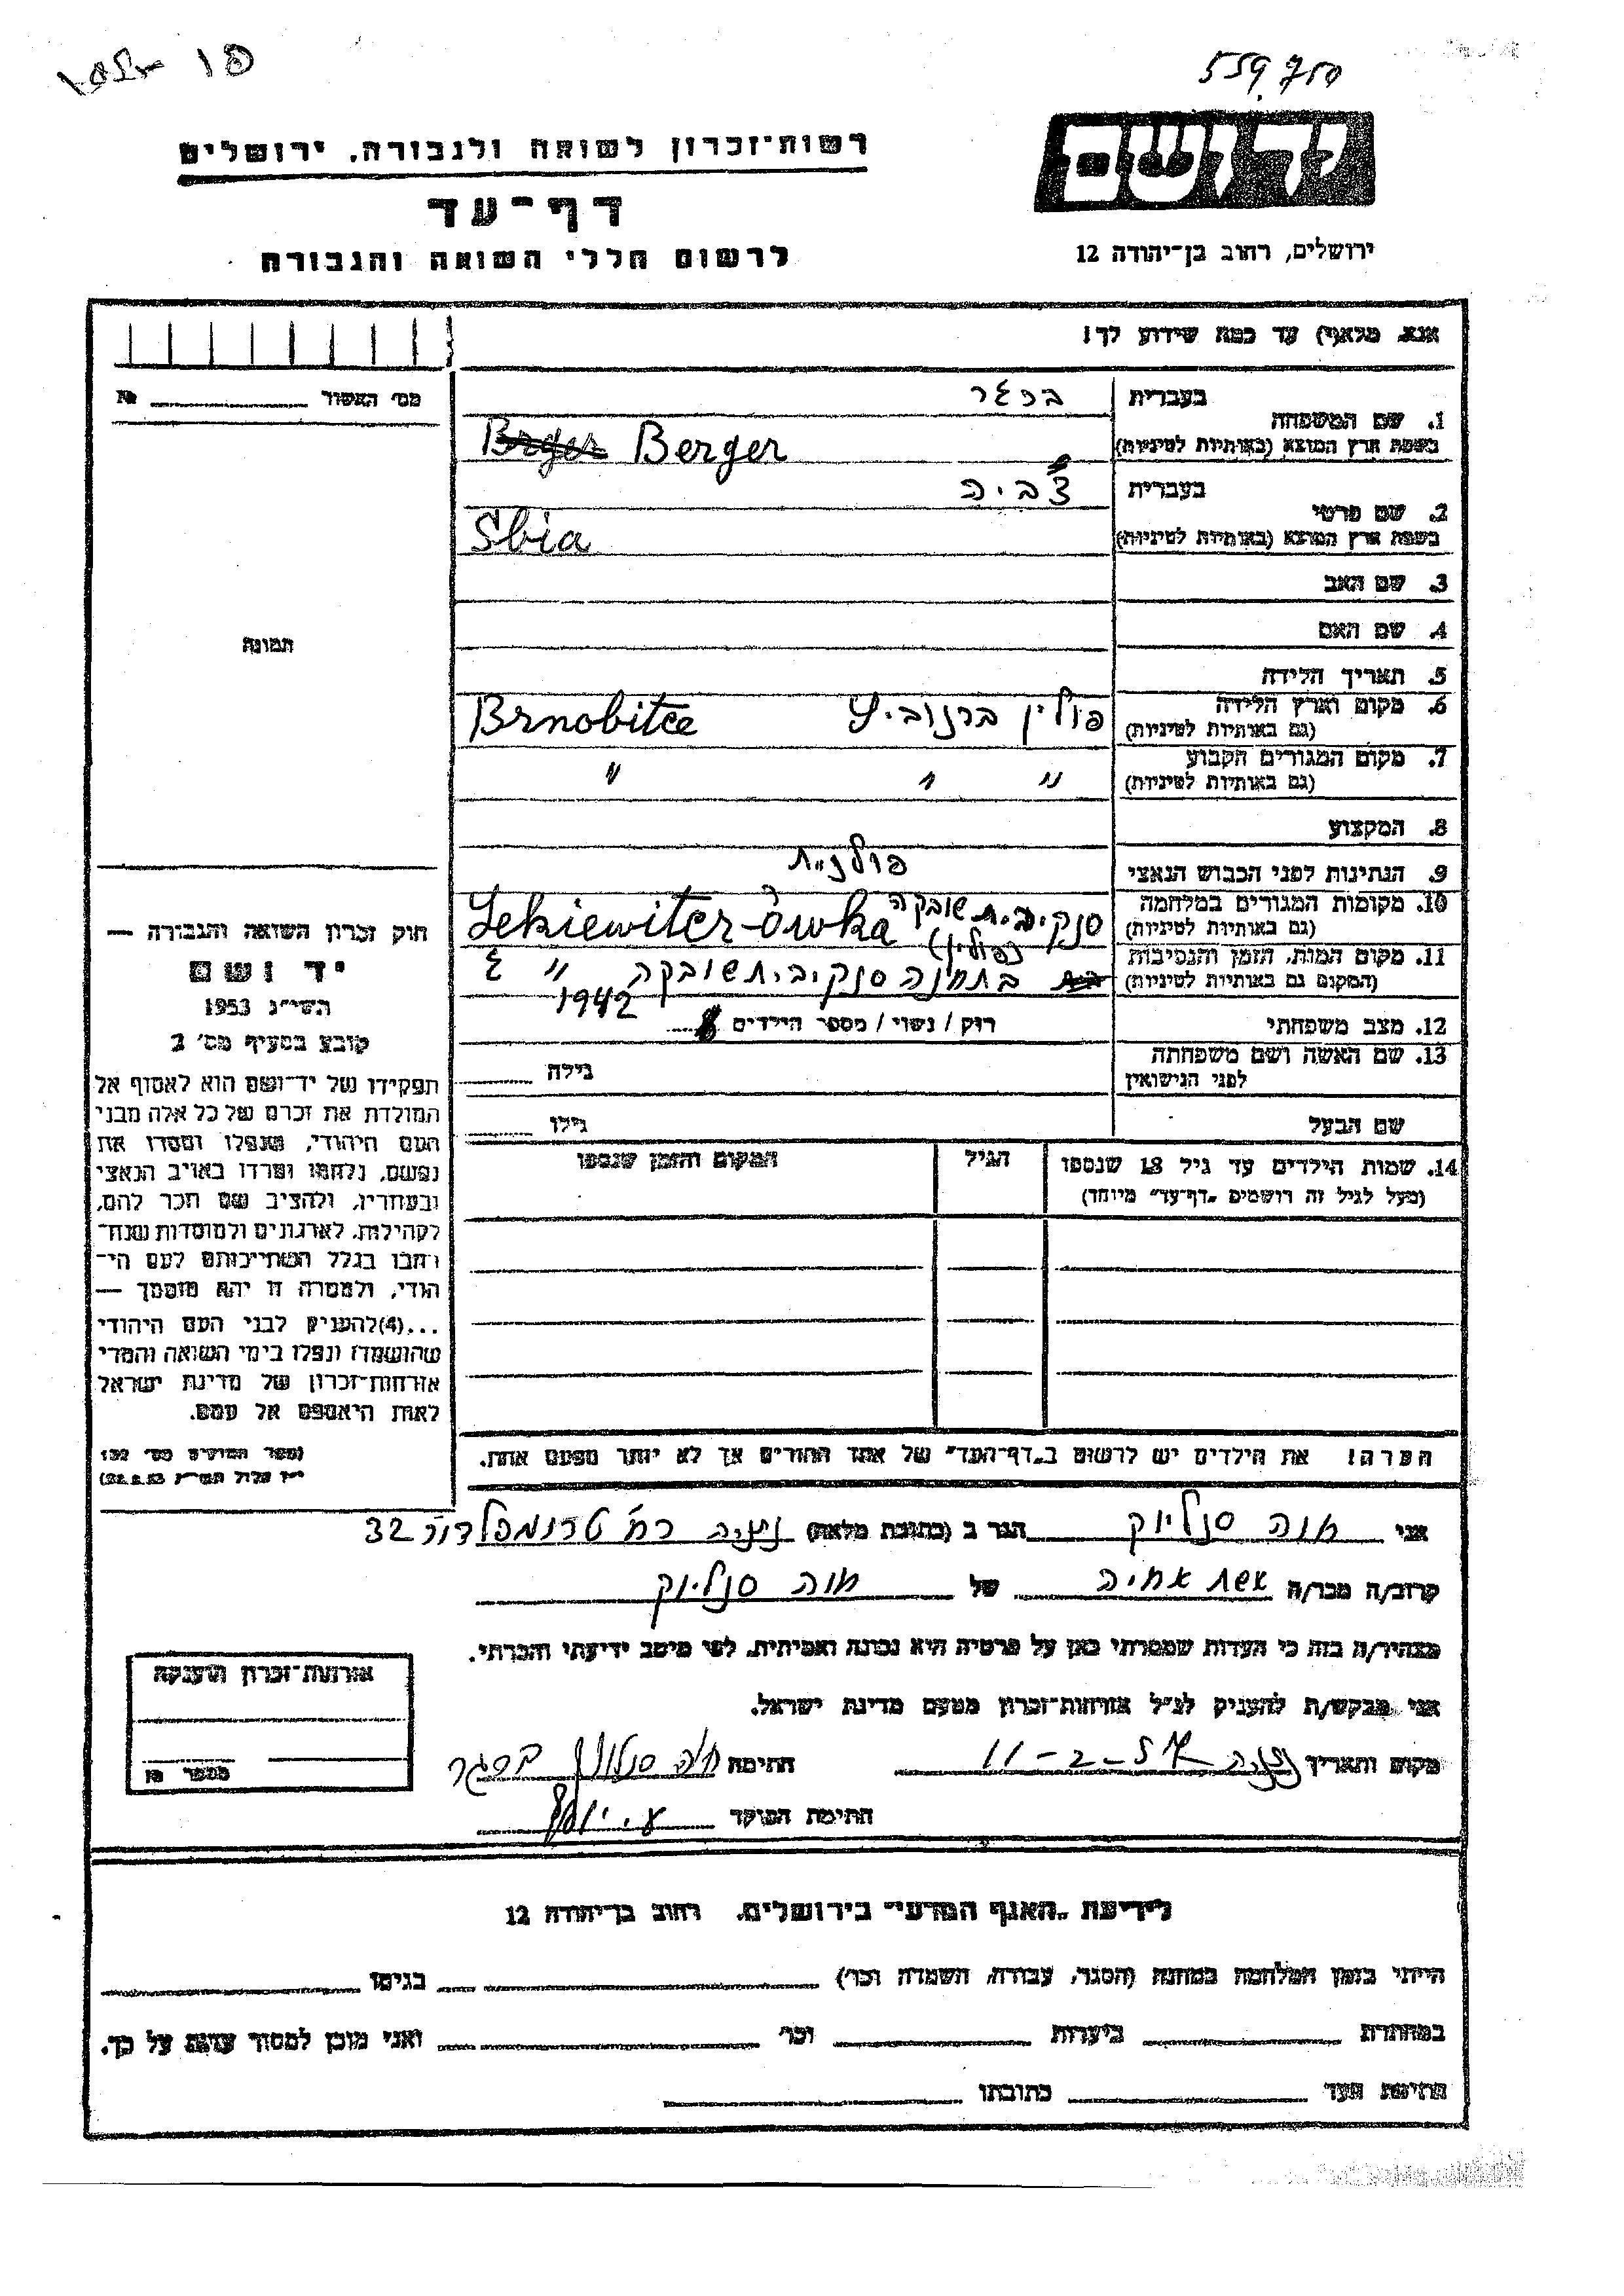 559.750
רשות־זכרון לשואה ולגבורה, ירושלים
יד ושם
דף־עד
לרשום חללי השואה והגבורה
ירושלים, רחוב בן־יהודה 12
אנא, מלא(י) עד כמה שידוע לך!
מס׳ האשור № ______
1. שם המשפחה
בעברית ברגר
בשפת ארץ המוצא (באותיות לטיניות) Berger
2. שם פרטי
בעברית צביה
בשפת ארץ המוצא (באותיות לטיניות) Sbia
3. שם האב
4. שם האם
תמונה
5. תאריך הלידה
6. מקום וארץ הלידה
(גם באותיות לטיניות) פולין ברנוביץ Brnobitce
7. מקום המגורים הקבוע
(גם באותיות לטיניות) " " "
8. המקצוע
9. הנתינות לפני הכבוש הנאצי פולנית
10. מקומות המגורים במלחמה
(גם באותיות לטיניות) סנקיביתשובקה
(פולין)
11. מקום המות, הזמן והנסיבות
(המקום גם באותיות לטיניות) במחנה סנקיביתשובקה "
1942
12. מצב משפחתי רוק / נשוי / מספר הילדים
13. שם האשה ושם משפחתה
לפני הנישואין גילה
שם הבעל גילו
14. שמות הילדים עד גיל 18 שנספו
(מעל לגיל זה רושמים „דף־עד״ מיוחד)
הגיל
המקום והזמן שנספו
חוק זכרון השואה והגבורה —
יד ושם
תשי״ג 1953
קובע בסעיף מס׳ 2
תפקידו של יד־ושם הוא לאסוף אל
המולדת את זכרם של כל אלה מבני
העם היהודי, שנפלו ומסרו את
נפשם, נלחמו ומרדו באויב הנאצי
ובעוזריו, ולהציב שם וזכר להם,
לקהילות, לארגונים ולמוסדות שנח־
רבו בגלל השתייכותם לעם הי־
הודי, ולמטרה זו יהא מוסמך —
...(4)להעניק לבני העם היהודי
שהושמדו ונפלו בימי השואה והמרי
אזרחות־זכרון של מדינת ישראל
לאות היאספם אל עמם.
(ספר החוקים מס׳ 132
י״ז אלול תשי״ג 28.8.53)
הערה! את הילדים יש לרשום ב„דף־העד״ של אחד ההורים אך לא יותר מפעם אחת.
אני חוה סנליוק הגר ב (כתובת מלאה) נתניה רח׳ טרומפלדור 32
קרוב/ה מכר/ה אשת אחיה של חוה סנליוק
מצהיר/ה בזה כי העדות שמסרתי כאן על פרטיה היא נכונה ואמיתית, לפי מיטב ידיעתי והכרתי.
אני מבקש/ת להעניק לנ״ל אזרחות־זכרון מטעם מדינת ישראל.
מקום ותאריך נתניה 11-2-57 חתימה חוה סנליוק ברגר
חתימת הפוקד
אזרחות־זכרון הוענקה
מספר
לידיעת „האגף המדעי״ בירושלים, רחוב בן־יהודה 12
הייתי בזמן המלחמה במחנה (הסגר, עבודה, השמדה וכו׳) ______ בגיטו ______
במחתרת ______ ביערות ______ וכו׳ ______ ואני מוכן למסור עדות על כך.
חתימת העד ______ כתובתו ______